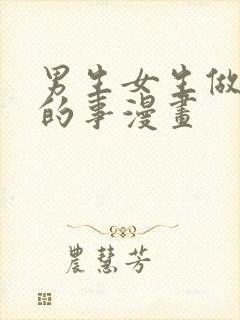 男生女生做
的事漫畫
農慧芳